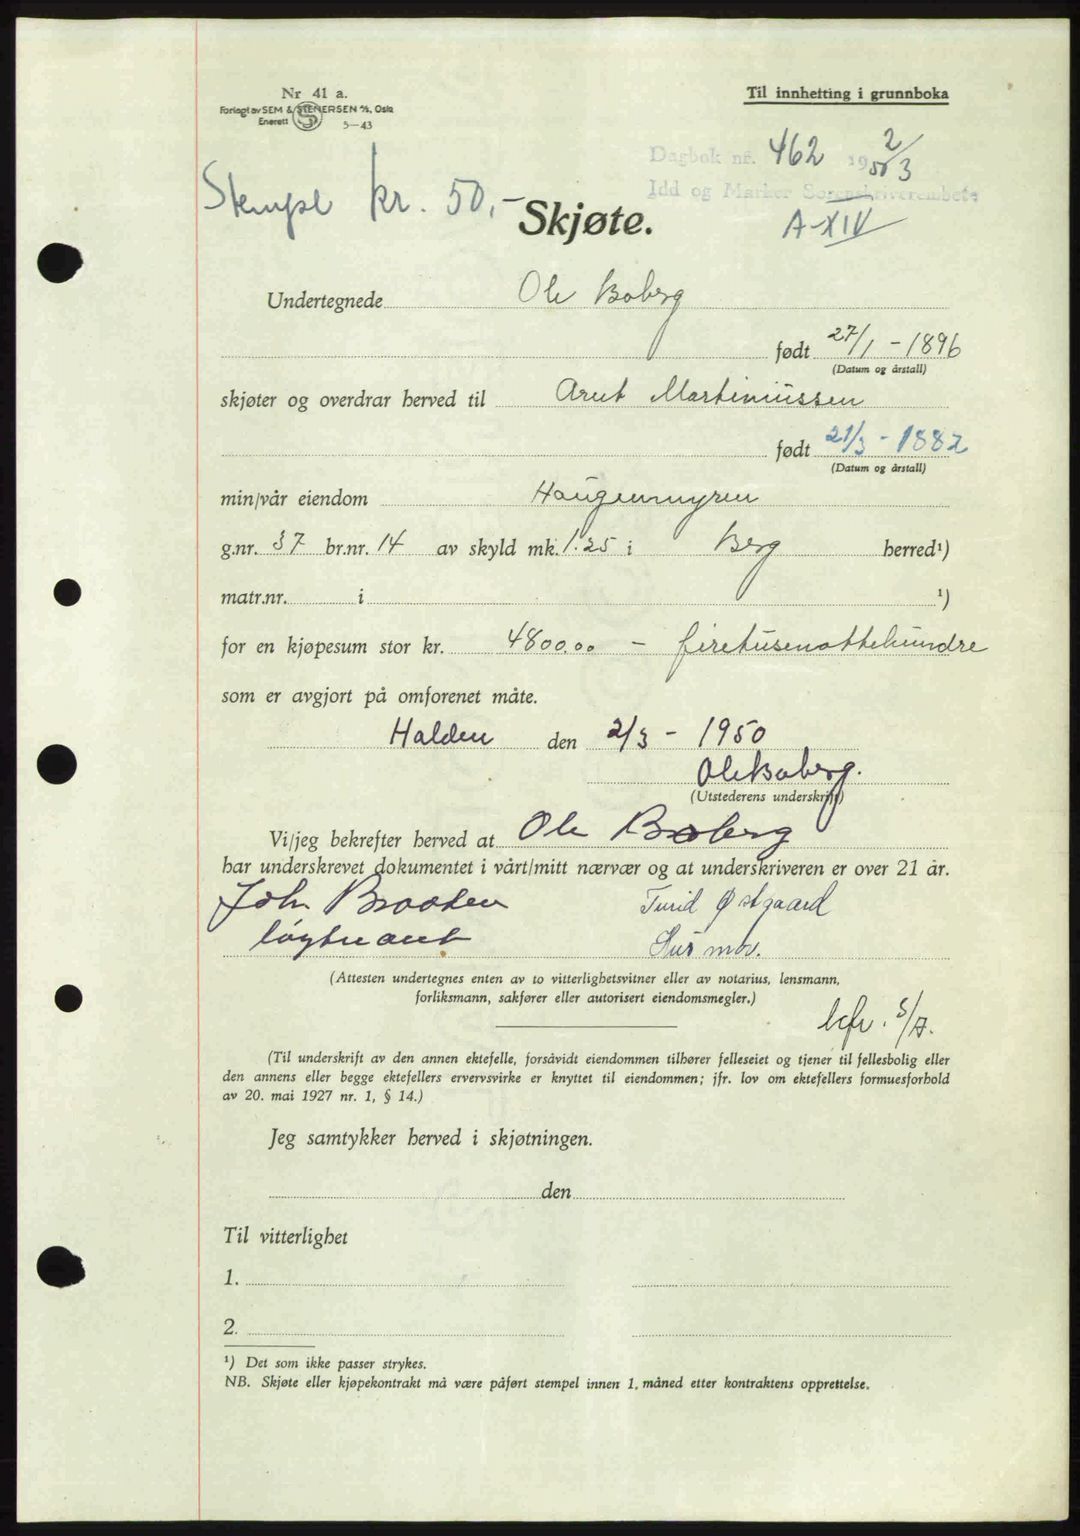 Nr 41 a.
Forlagt av SEM & STENERSEN A/S, Oslo
Enerett 5-43
Til innhefting i grunnboka
Dagbok nr. 462 1950 2/3
Idd og Marker Sorenskriverembete
A-XIV
Stempel kr. 50,-
Skjøte.
Undertegnede Ole Boberg
født 27/1 - 1896
(Datum og årstall)
skjøter og overdrar herved til Arnt Martiniussen
født 21/3 - 1882
(Datum og årstall)
min/vår eiendom Haugenmyren
g.nr. 37 br.nr. 14 av skyld mk. 1.25 i Berg herred¹)
matr.nr. i ¹)
for en kjøpesum stor kr. 4800.00 - firetusenottehundre
som er avgjort på omforenet måte.
Halden den 2/3 - 1950
Ole Boberg.
(Utstederens underskrift)
Vi/jeg bekrefter herved at Ole Boberg
har underskrevet dokumentet i vårt/mitt nærvær og at underskriveren er over 21 år.
John Braaten Turid Østgaard
løytnant Husmor.
(Attesten undertegnes enten av to vitterlighetsvitner eller av notarius, lensmann,
forliksmann, sakfører eller autorisert eiendomsmegler.)
(Til underskrift av den annen ektefelle, forsåvidt eiendommen tilhører felleseiet og tjener til fellesbolig eller
den annens eller begge ektefellers ervervsvirke er knyttet til eiendommen; jfr. lov om ektefellers formuesforhold
av 20. mai 1927 nr. 1, § 14.)
Jeg samtykker herved i skjøtningen.
den
Til vitterlighet
1.
2.
¹) Det som ikke passer strykes.
NB. Skjøte eller kjøpekontrakt må være påført stempel innen 1. måned etter kontraktens opprettelse.